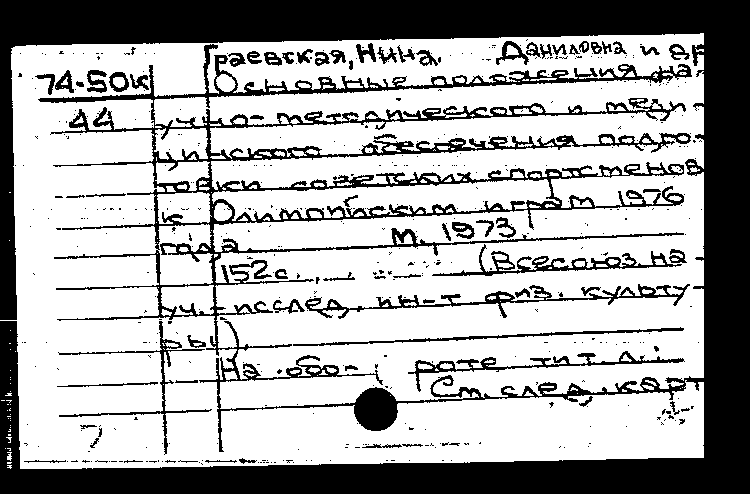 Граевская, Нина Даниловна и др
74-50к Основные положения на-
44 учно-методического и меди-
цинского обеспечения подго-
товки советских спортсменов
к Олимпийским играм 1976
года. М., 1973.
152с. (Всесоюз. на-
уч.-исслед. ин-т физ. культу-
ры).
На обо- роте тит. л.:
См. след. карт
7